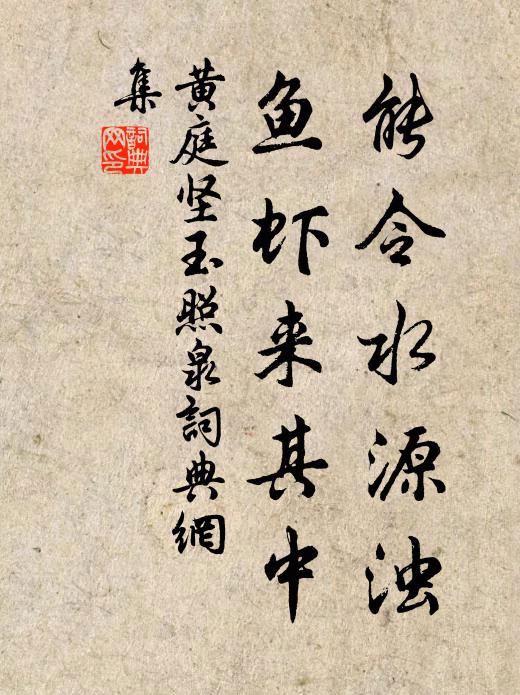 能令水源浊
鱼虾来其中
黄庭坚玉照泉詞典網
集
詞典
网印